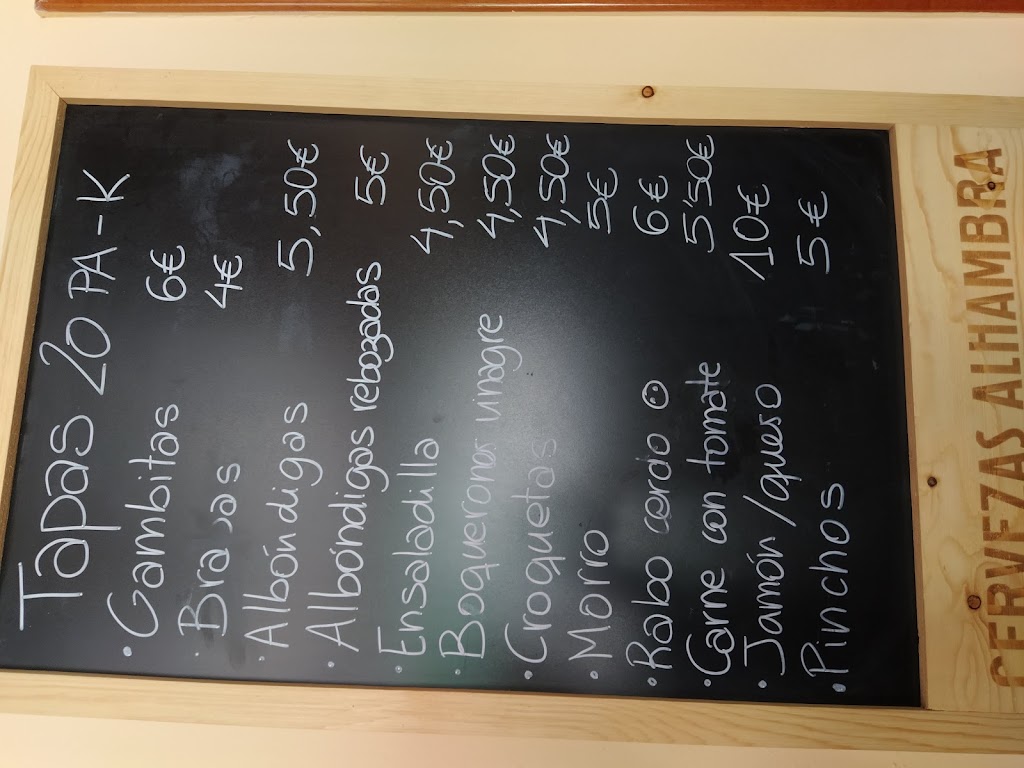 Tapas 20 PA-K
· Gambitas 6€
· Bravas 4€
· Albóndigas 5,50€
· Albóndigas rebozadas 5€
· Ensaladilla 4,50€
· Boquerones vinagre 4,50€
· Croquetas 4,50€
· Morro 5€
· Rabo cerdo 6€
· Carne con tomate 5'50€
· Jamón/queso 10€
· Pinchos 5€
CERVEZAS ALHAMBRA